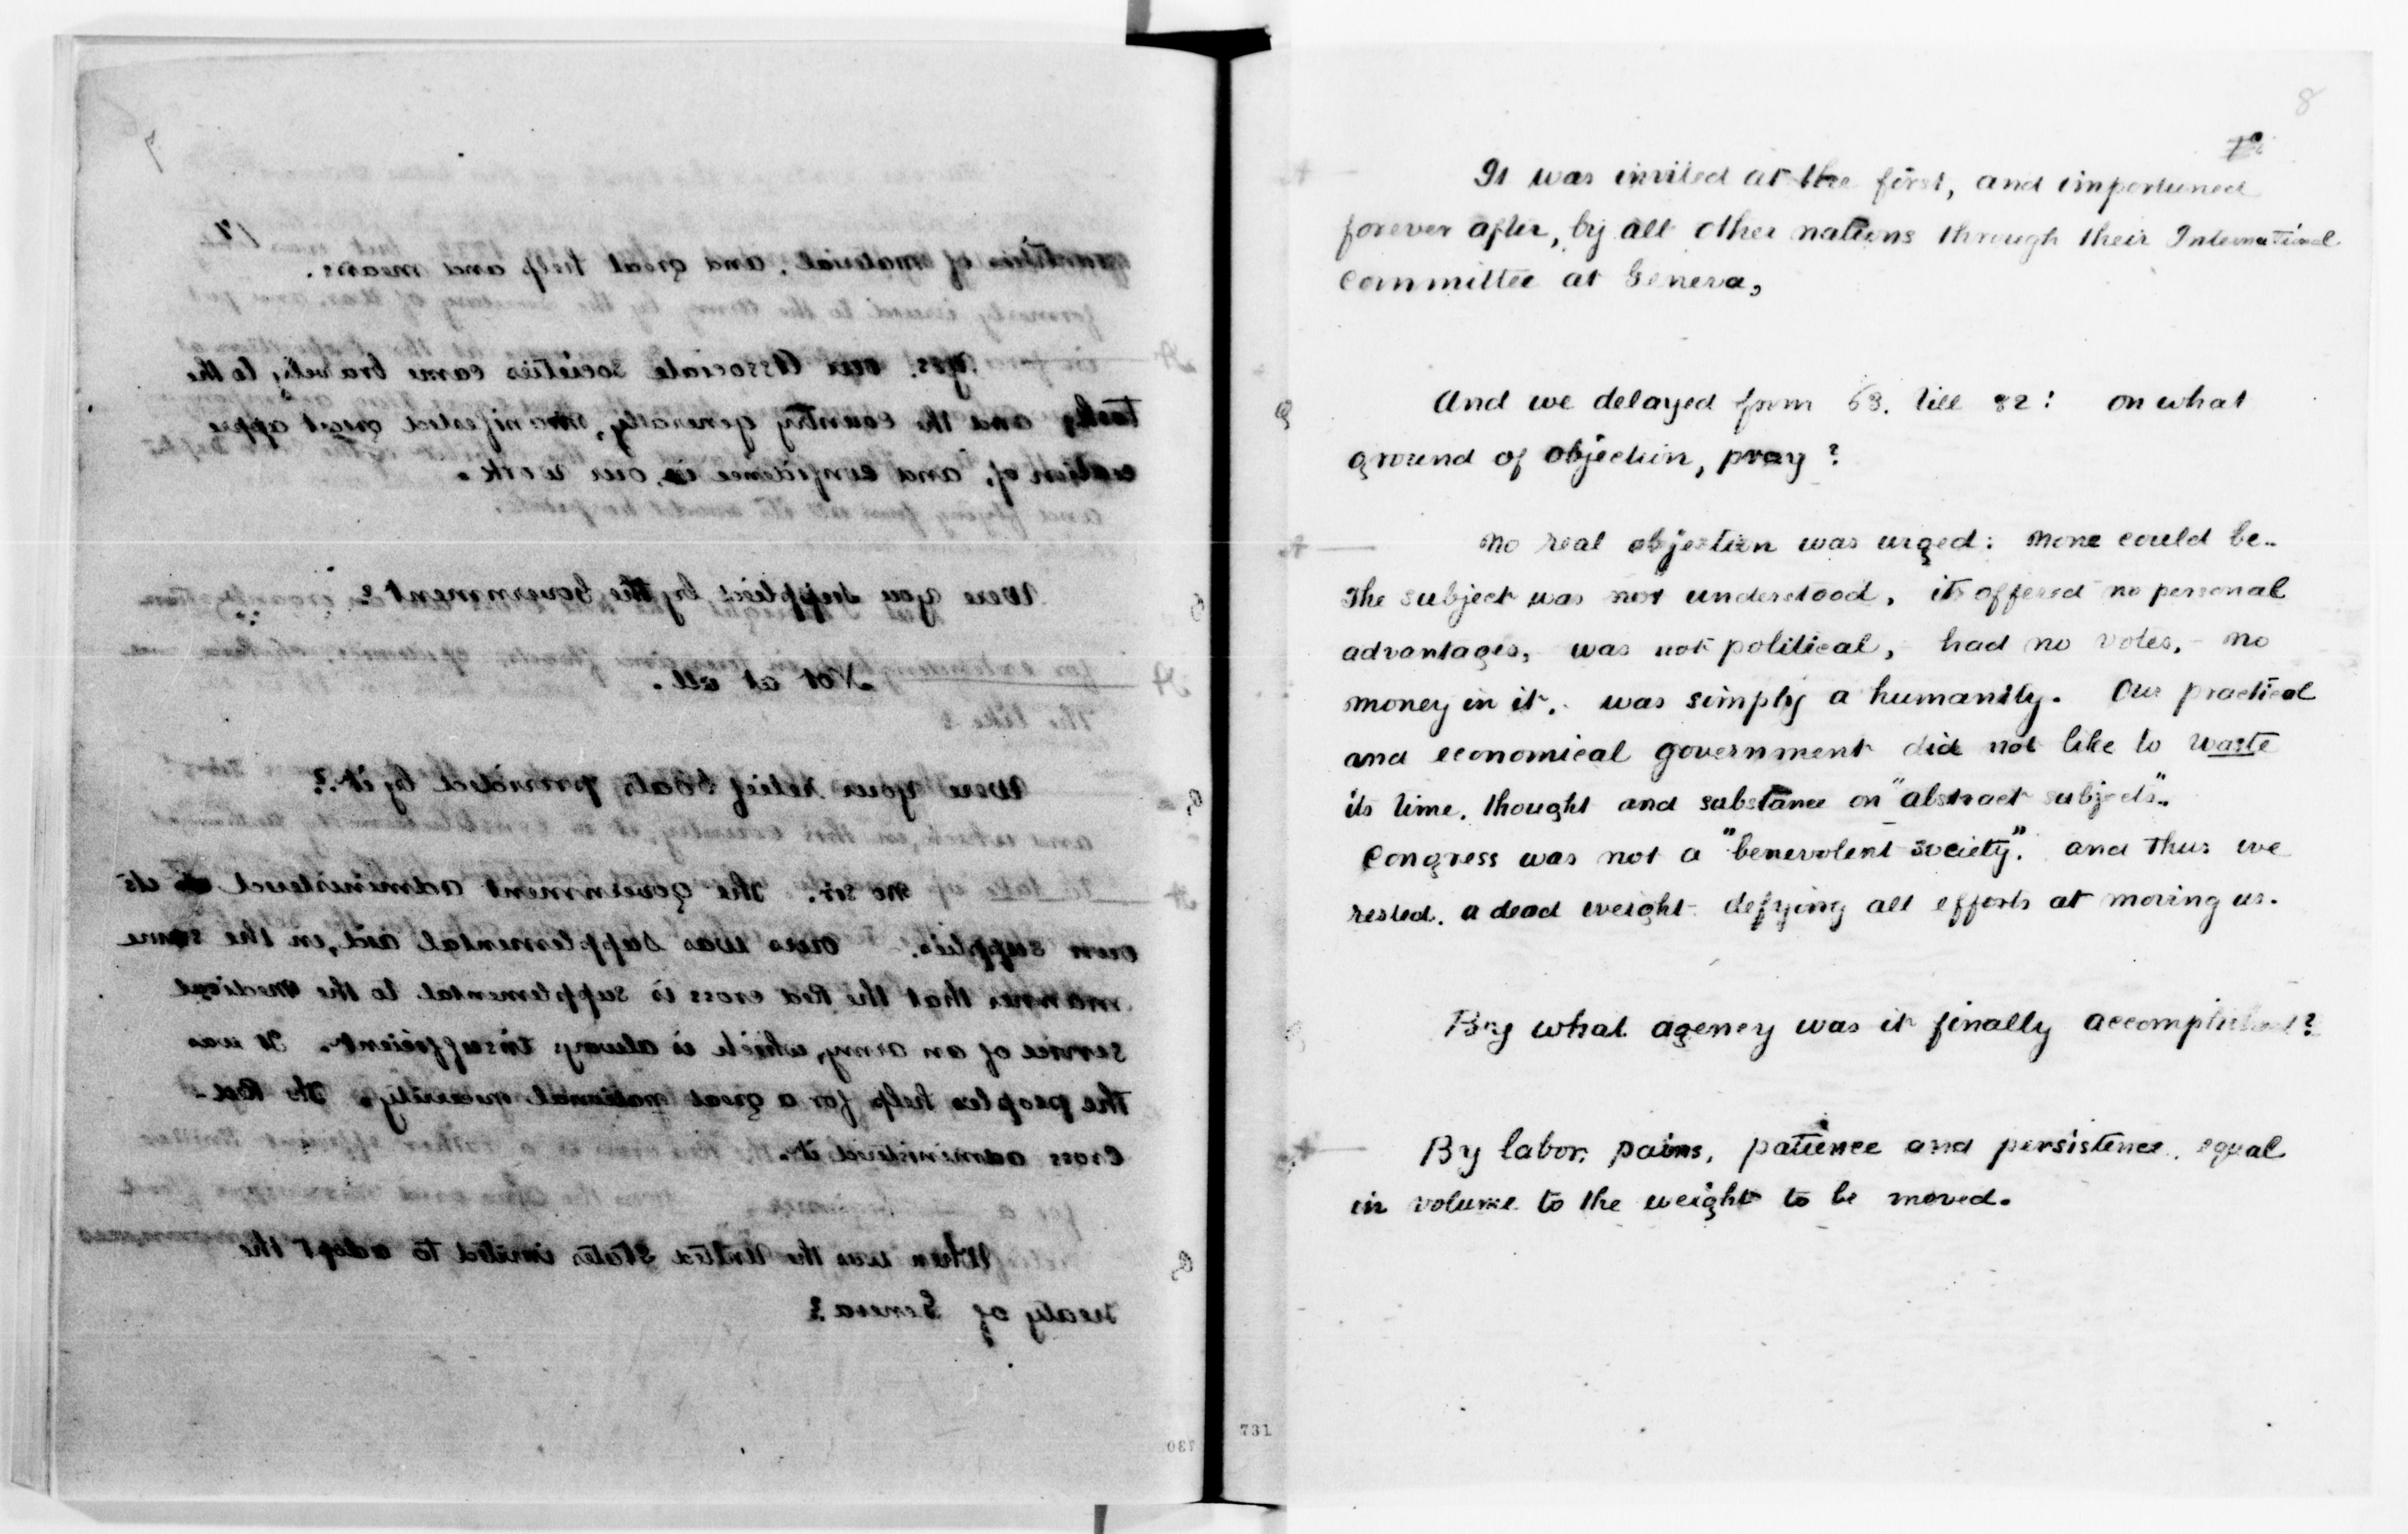 7
17
quantities of material, and great help and means.
A Yes. our Associate societies came bravely to the
task, and the country generally, manifested great appre
ciation of, and confidence in, our work.
Q Were you supplied by the Government?
A Not at all.
Q Were your relief boats provided by it?
A No sir. The government administered its
own supplies. Ours was supplemental aid, in the same
manner that the Red cross is supplemental to the Medical
service of an army, which is always insufficient. It was
the peoples help for a great national necessity. The Red
Cross administered it.
Q When was the United States invited to adopt the
treaty of Geneva?
730
8
A It was invited at the first, and importuned
forever after, by all other nations through their International
Committee at Geneva,
Q And we delayed from 63. till 82: on what
ground of objection, pray?
A No real objection was urged: none could be..
The subject was not understood, it offered no personal
advantages, was not political, had no votes, - no
money in it, was simply a humanity. Our practical
and economical government did not like to waste
its time, thought and substance on "abstract subjects"..
Congress was not a "benevolent society". and thus we
rested, a dead weight - defying all efforts at moving us.
Q By what agency was it finally accomplished?
A By labor, pains, patience and persistence, equal
in volume to the weight to be moved.
731